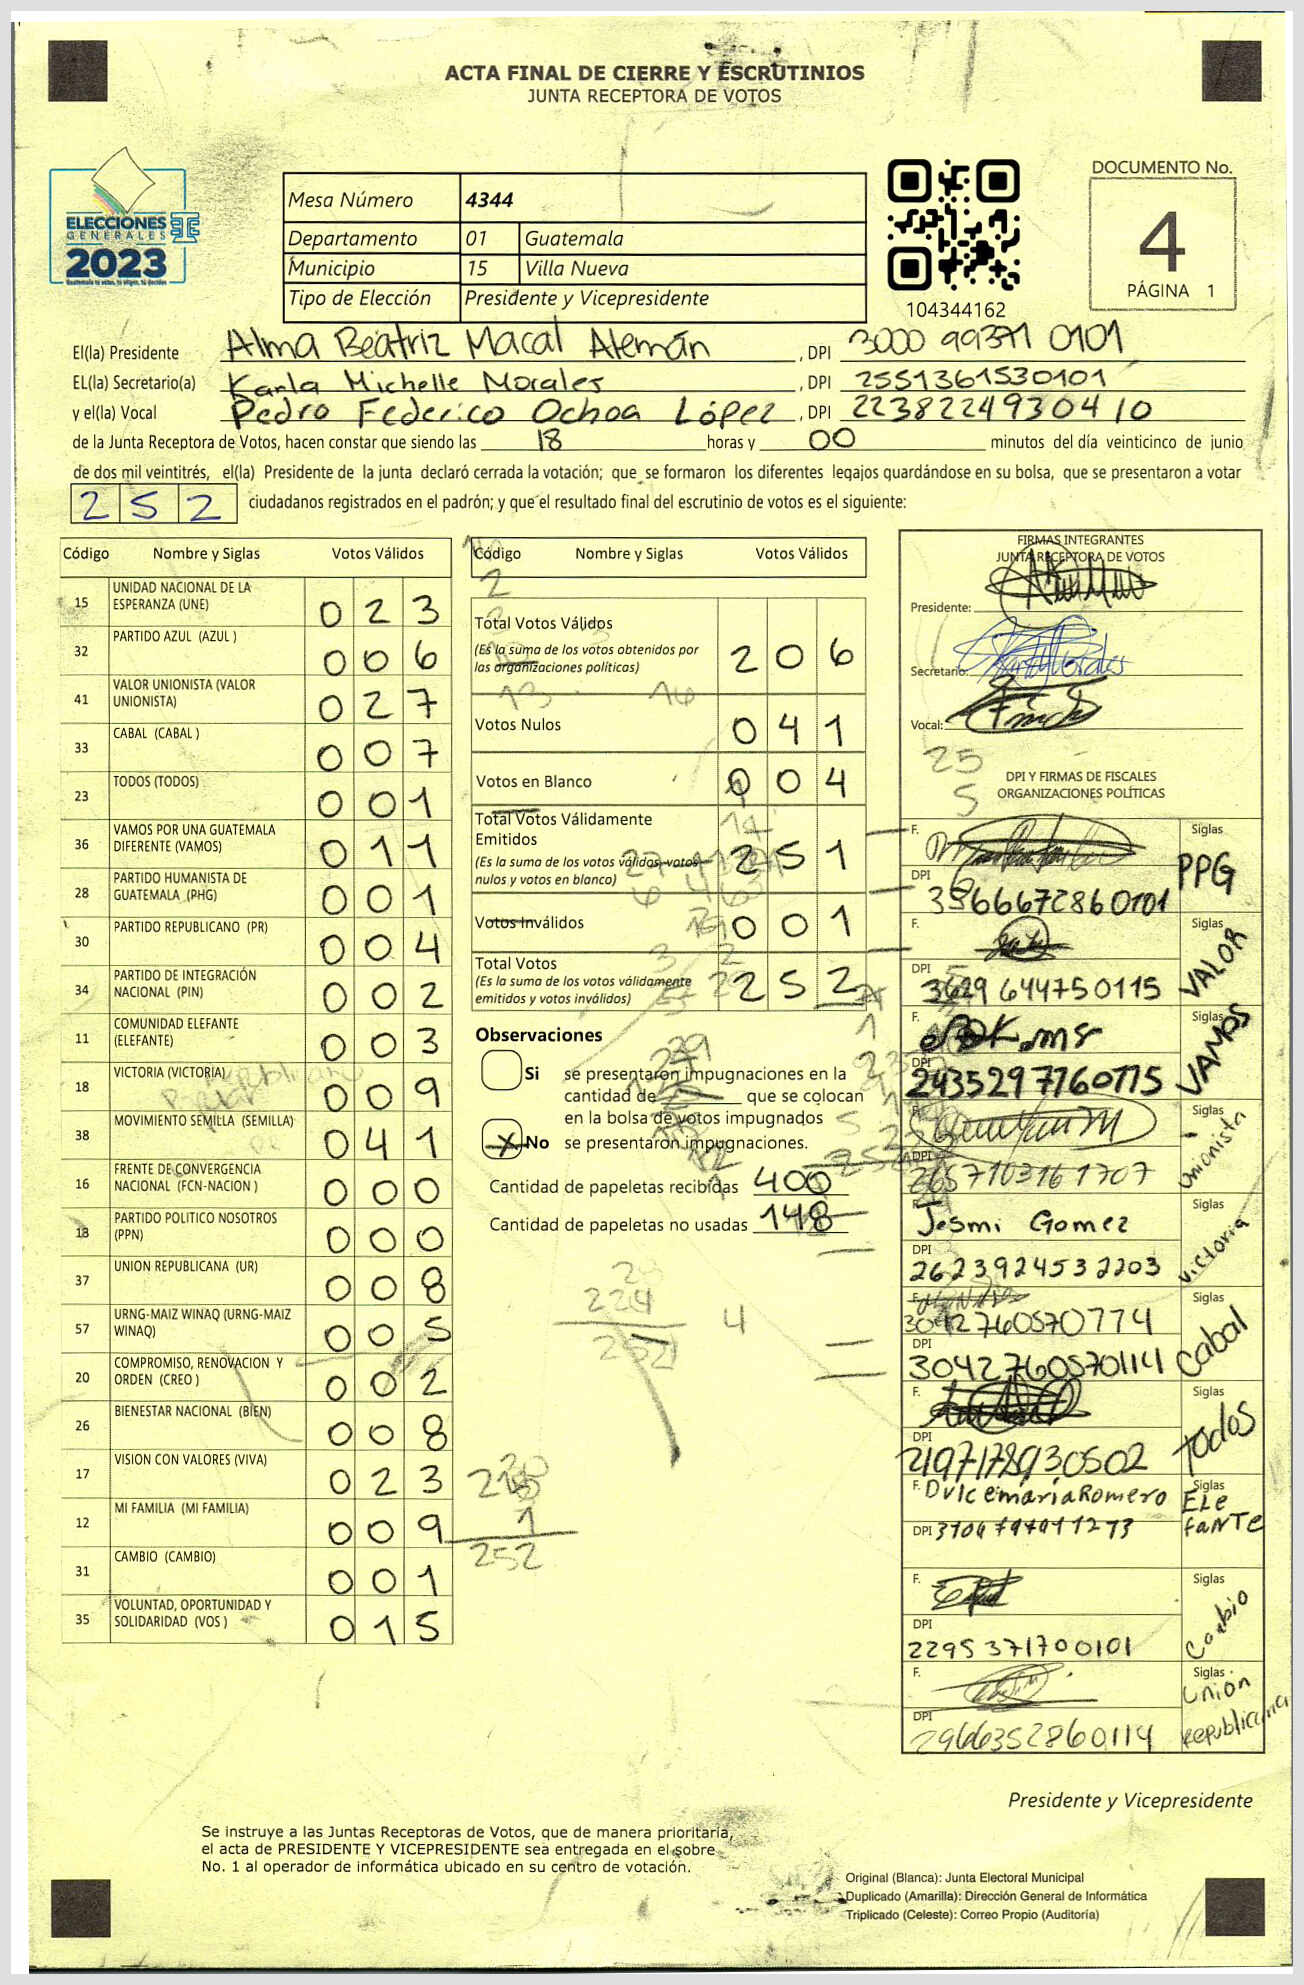 ACTA FINAL DE CIERRE Y ESCRUTINIOS
JUNTA RECEPTORA DE VOTOS
ELECCIONES
GENERALES
2023
Mesa Número 4344
Departamento 01 Guatemala
Municipio 15 Villa Nueva
Tipo de Elección Presidente y Vicepresidente
104344162
DOCUMENTO No.
4
PÁGINA 1
El(la) Presidente Alma Beatriz Macal Alemán, DPI 3000 99371 0101
EL(la) Secretario(a) Karla Michelle Morales, DPI 2551361530101
y el(la) Vocal Pedro Federico Ochoa López, DPI 2238224930410
de la Junta Receptora de Votos, hacen constar que siendo las 18 horas y 00 minutos del día veinticinco de junio
de dos mil veintitrés, el(la) Presidente de la junta declaró cerrada la votación; que se formaron los diferentes legajos quardándose en su bolsa, que se presentaron a votar
252 ciudadanos registrados en el padrón; y que el resultado final del escrutinio de votos es el siguiente:
Código Nombre y Siglas Votos Válidos
15 UNIDAD NACIONAL DE LA ESPERANZA (UNE) 023
32 PARTIDO AZUL (AZUL ) 006
41 VALOR UNIONISTA (VALOR UNIONISTA) 027
33 CABAL (CABAL ) 007
23 TODOS (TODOS) 001
36 VAMOS POR UNA GUATEMALA DIFERENTE (VAMOS) 011
28 PARTIDO HUMANISTA DE GUATEMALA (PHG) 001
30 PARTIDO REPUBLICANO (PR) 004
34 PARTIDO DE INTEGRACIÓN NACIONAL (PIN) 002
11 COMUNIDAD ELEFANTE (ELEFANTE) 003
18 VICTORIA (VICTORIA) 009
38 MOVIMIENTO SEMILLA (SEMILLA) 041
16 FRENTE DE CONVERGENCIA NACIONAL (FCN-NACION ) 000
13 PARTIDO POLITICO NOSOTROS (PPN) 000
37 UNION REPUBLICANA (UR) 008
57 URNG-MAIZ WINAQ (URNG-MAIZ WINAQ) 005
20 COMPROMISO, RENOVACION Y ORDEN (CREO ) 002
26 BIENESTAR NACIONAL (BIEN) 008
17 VISION CON VALORES (VIVA) 023
12 MI FAMILIA (MI FAMILIA) 009
31 CAMBIO (CAMBIO) 001
35 VOLUNTAD, OPORTUNIDAD Y SOLIDARIDAD (VOS ) 015
Código Nombre y Siglas Votos Válidos
Total Votos Válidos 206
(Es la suma de los votos obtenidos por las organizaciones políticas)
Votos Nulos 041
Votos en Blanco 004
Total Votos Válidamente Emitidos 251
(Es la suma de los votos válidos, votos nulos y votos en blanco)
Votos Inválidos 001
Total Votos 252
(Es la suma de los votos válidamente emitidos y votos inválidos)
Observaciones
Si se presentaron impugnaciones en la
cantidad de que se colocan
en la bolsa de votos impugnados
X No se presentaron impugnaciones.
Cantidad de papeletas recibidas 400
Cantidad de papeletas no usadas 148
252
FIRMAS INTEGRANTES
JUNTA RECEPTORA DE VOTOS
Presidente:
Secretario:
Vocal:
DPI Y FIRMAS DE FISCALES
ORGANIZACIONES POLÍTICAS
F. Siglas PPG
DPI
F. Siglas VALOR
DPI 3629 644750115
F. Siglas VAMOS
DPI 2435297760115
F. Siglas Unionista
DPI 2657103161707
F. Jesmi Gomez Siglas Victoria
DPI 2623924532203
F. Siglas Cabal
DPI 3042760570114
F. Siglas Todos
DPI 2197178930502
F. Dulce maria Romero Siglas ELefaNTE
DPI
F. Siglas Cambio
DPI 2295371700101
F. Siglas Union republicana
DPI 2966352860114
Presidente y Vicepresidente
Se instruye a las Juntas Receptoras de Votos, que de manera prioritaria,
el acta de PRESIDENTE Y VICEPRESIDENTE sea entregada en el sobre
No. 1 al operador de informática ubicado en su centro de votación.
Original (Blanca): Junta Electoral Municipal
Duplicado (Amarilla): Dirección General de Informática
Triplicado (Celeste): Correo Propio (Auditoría)